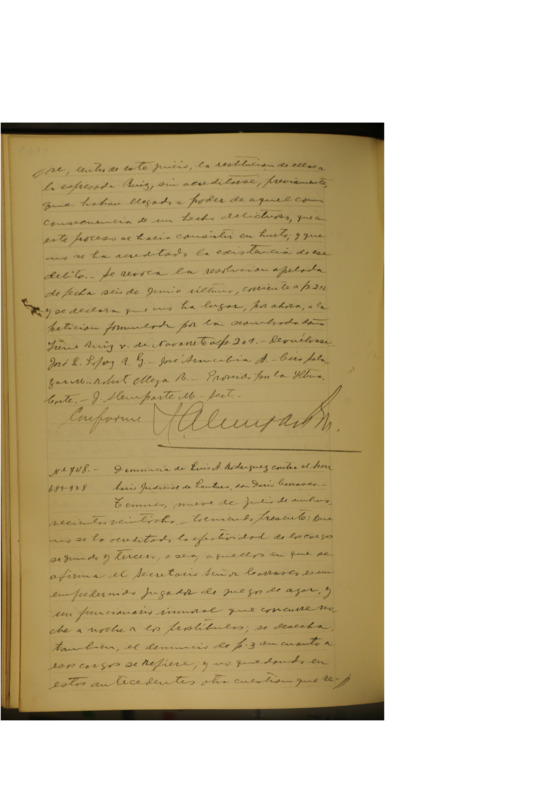 se, antes de este juicio, la restitucion de ellas a
la espresada Ruiz, sin acreditarse, previamente,
que habian llegado a poder de aquel como
consecuencia de un hecho delictuoso, que en
este proceso se hacia consistir en hurto, y que
no se ha acreditado la existencia de ese
delito.- Se revoca la resolucion apelada
de fecha seis de Junio último, corriente a fs.
y se declara que no ha lugar, por ahora, a la
peticion formulada por la nombrada doña
Irene Ruiz v. de Navarrete a fs. 201.- Devuélvase
José L. Lopez R. G.- José A.-
Robert Meza R.- Proveido por la Iltma.
Corte.- J. Alemparte M.- Sect.-
Conforme
No 908.- Denuncia de Luis A. Rodriguez contra el Secre
689-928 tario Judicial de Don Dario Carrasco.-
Temuco, nueve de Julio de mil no-
vecientos veintiocho.- Teniendo presente: Que
no se ha acreditado la efectividad de los cargos
segundo y tercero, o sea, aquellos en que se
afirma el Secretario Señor Carrasco es un
empedernido jugador de juegos de azar, y
un funcionario inmoral que concurre no-
che a noche a los prostíbulos; se desecha,
tambien, el denuncio de fs. 3 en cuanto a
esos cargos se refiere, y no quedando en
estos antecedentes otra cuestion que re-